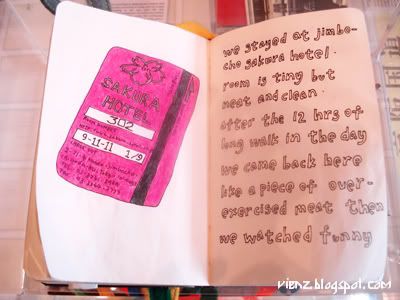 SAKURA
HOTEL
302
9-11-11 1/9
we stayed at jimbo-
cho sakura hotel.
room is tiny but
neat and clean.
after the 12 hrs of
long walk in the day
we came back here
like a piece of over-
exercised meat then
we watched funny
vienz.blogspot.com